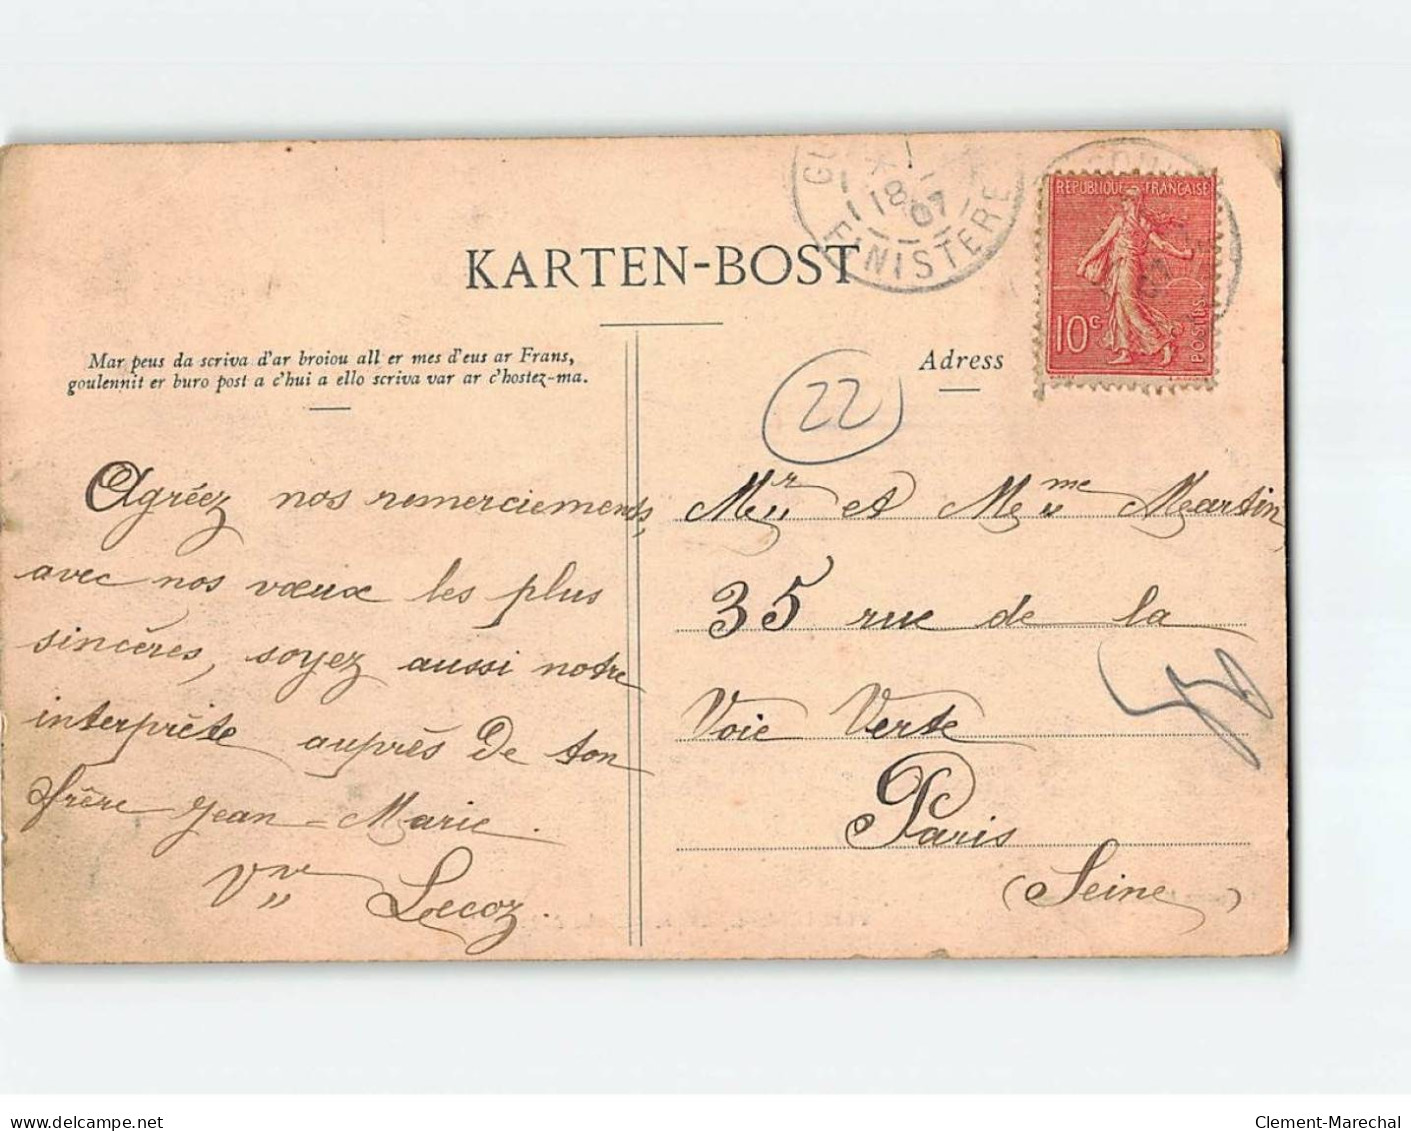 KARTEN-BOST
Mar peus da scriva d'ar broiou all er mes d'eus ar Frans,
goulennit er buro post a c'hui a ello scriva var ar c'hostez-ma.
Adress
FINISTERE
18
07
REPUBLIQUE FRANÇAISE
10c
POSTES
22
Agréez nos remerciements,
avec nos vœux les plus
sincères, soyez aussi notre
interprète auprès de ton
frère Jean-Marie.
Vve Lecoz.
Mr et Mme Martin
35 rue de la
Voie Verte
Paris
(Seine)
delcampe.net
Clement-Marechal